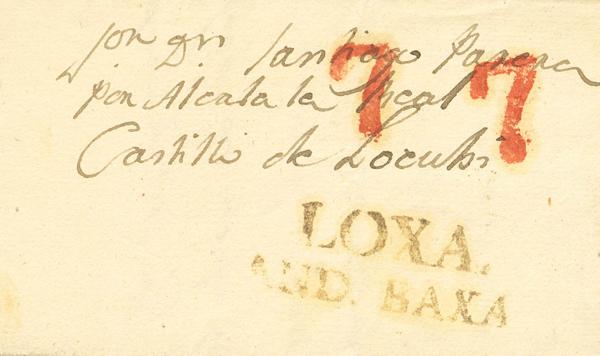 Sor Dn Santiago
7 7
por Alcala la Real
Castillo de Locubi
LOXA.
AND. BAXA